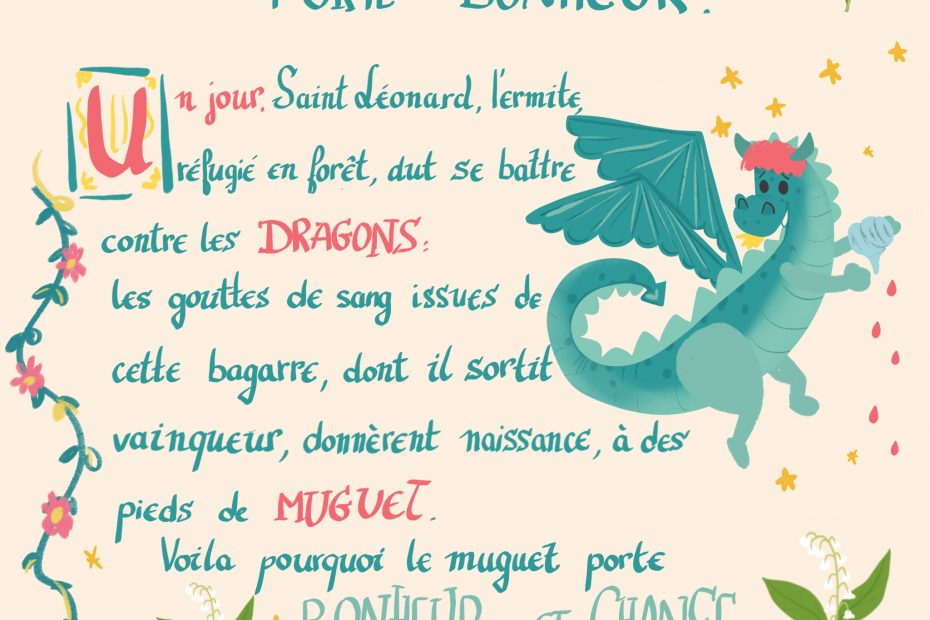 PORTE - BONHEUR.
Un jour. Saint Léonard, l'ermite,
réfugié en forêt, dut se battre
contre les DRAGONS:
les gouttes de sang issues de
cette bagarre, dont il sortit
vainqueur, donnèrent naissance, à des
pieds de MUGUET.
Voila pourquoi le muguet porte
BONHEUR et CHANCE